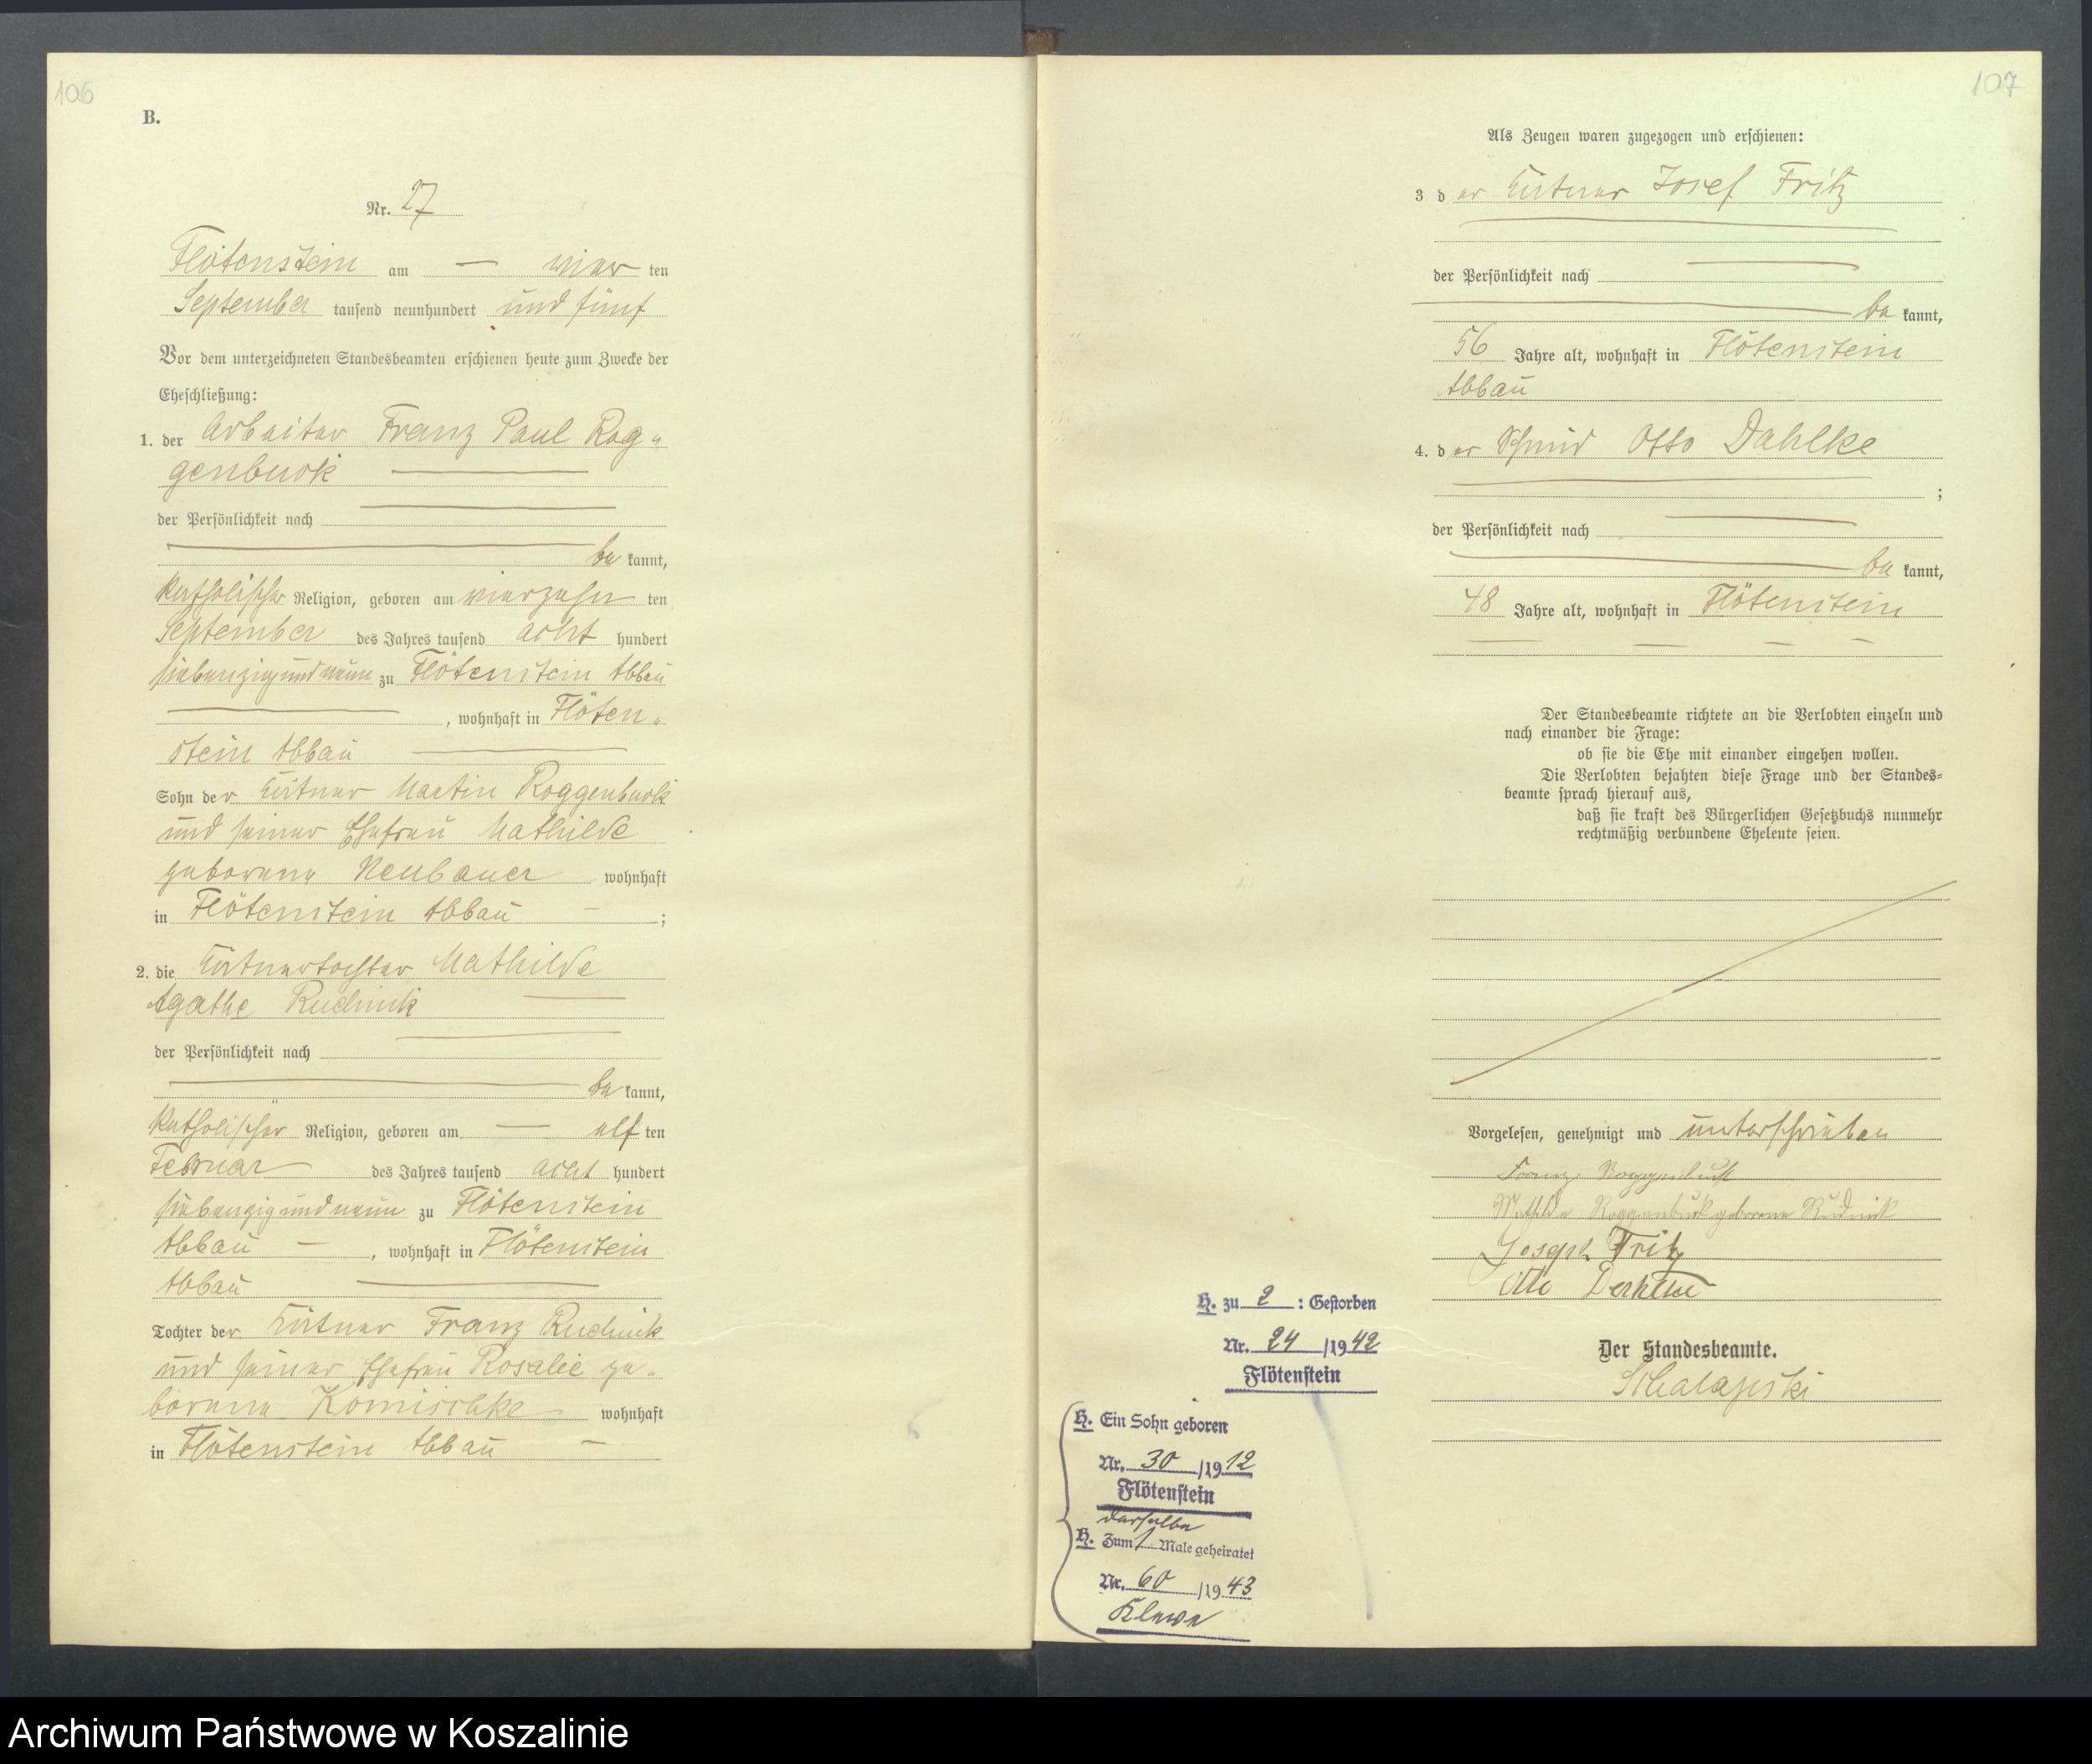 106
B.
Nr. 27
Flötenstein am — vier ten
September tausend neunhundert und fünf
Vor dem unterzeichneten Standesbeamten erschienen heute zum Zwecke der
Eheschließung:
1. der Arbeiter Franz Paul Rog-
genbuck
der Persönlichkeit nach
be kannt,
katholischer Religion, geboren am vierzehn ten
September des Jahres tausend acht hundert
siebenzig und neun zu Flötenstein Abbau
, wohnhaft in Flöten-
stein Abbau
Sohn der Eigentümer Martin Roggenbuck
und seiner Ehefrau Mathilde
geborene Neubauer wohnhaft
in Flötenstein Abbau — ;
2. die Mathilde
Agathe Rudnik
der Persönlichkeit nach
be kannt,
katholischer Religion, geboren am — elf ten
Februar des Jahres tausend acht hundert
siebenzig und neun zu Flötenstein
Abbau — , wohnhaft in Flötenstein
Abbau
Tochter der Franz Rudnik
und seiner Ehefrau Rosalie ge-
borene Komischke wohnhaft
in Flötenstein Abbau —
107
Als Zeugen waren zugezogen und erschienen:
3 d er Josef Fritz
der Persönlichkeit nach
be kannt,
56 Jahre alt, wohnhaft in Flötenstein
Abbau
4. d er Schmied Otto Dahlke
;
der Persönlichkeit nach
be kannt,
48 Jahre alt, wohnhaft in Flötenstein
Der Standesbeamte richtete an die Verlobten einzeln und
nach einander die Frage:
ob sie die Ehe mit einander eingehen wollen.
Die Verlobten bejahten diese Frage und der Standes=
beamte sprach hierauf aus,
daß sie kraft des Bürgerlichen Gesetzbuchs nunmehr
rechtmäßig verbundene Eheleute seien.
Vorgelesen, genehmigt und unterschrieben
Franz Roggenbuck
Mathilde Roggenbuck geborene Rudnik
Joseph Fritz
Otto Dahlke
Der Standesbeamte.
H. zu 2 : Gestorben
Nr. 24 /1942
Flötenstein
H. Ein Sohn geboren
Nr. 30 /1912
Flötenstein
derselbe
H. Zum 1 Male geheiratet
Nr. 60 /1943
Archiwum Państwowe w Koszalinie